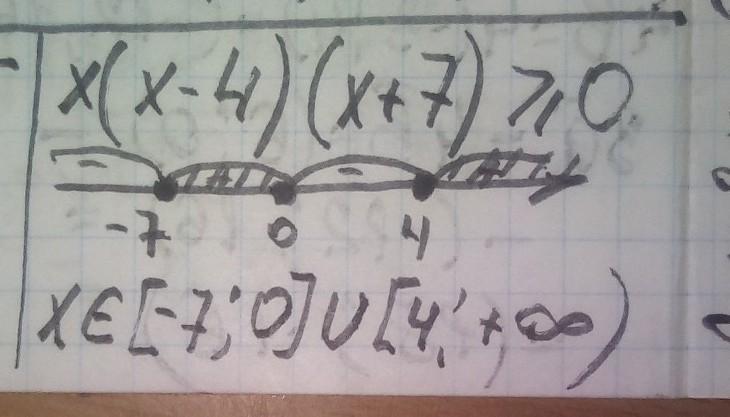 x(x-4)(x+7)⩾0
- + - +
-7 0 4
x∈[-7;0]∪[4;+∞)